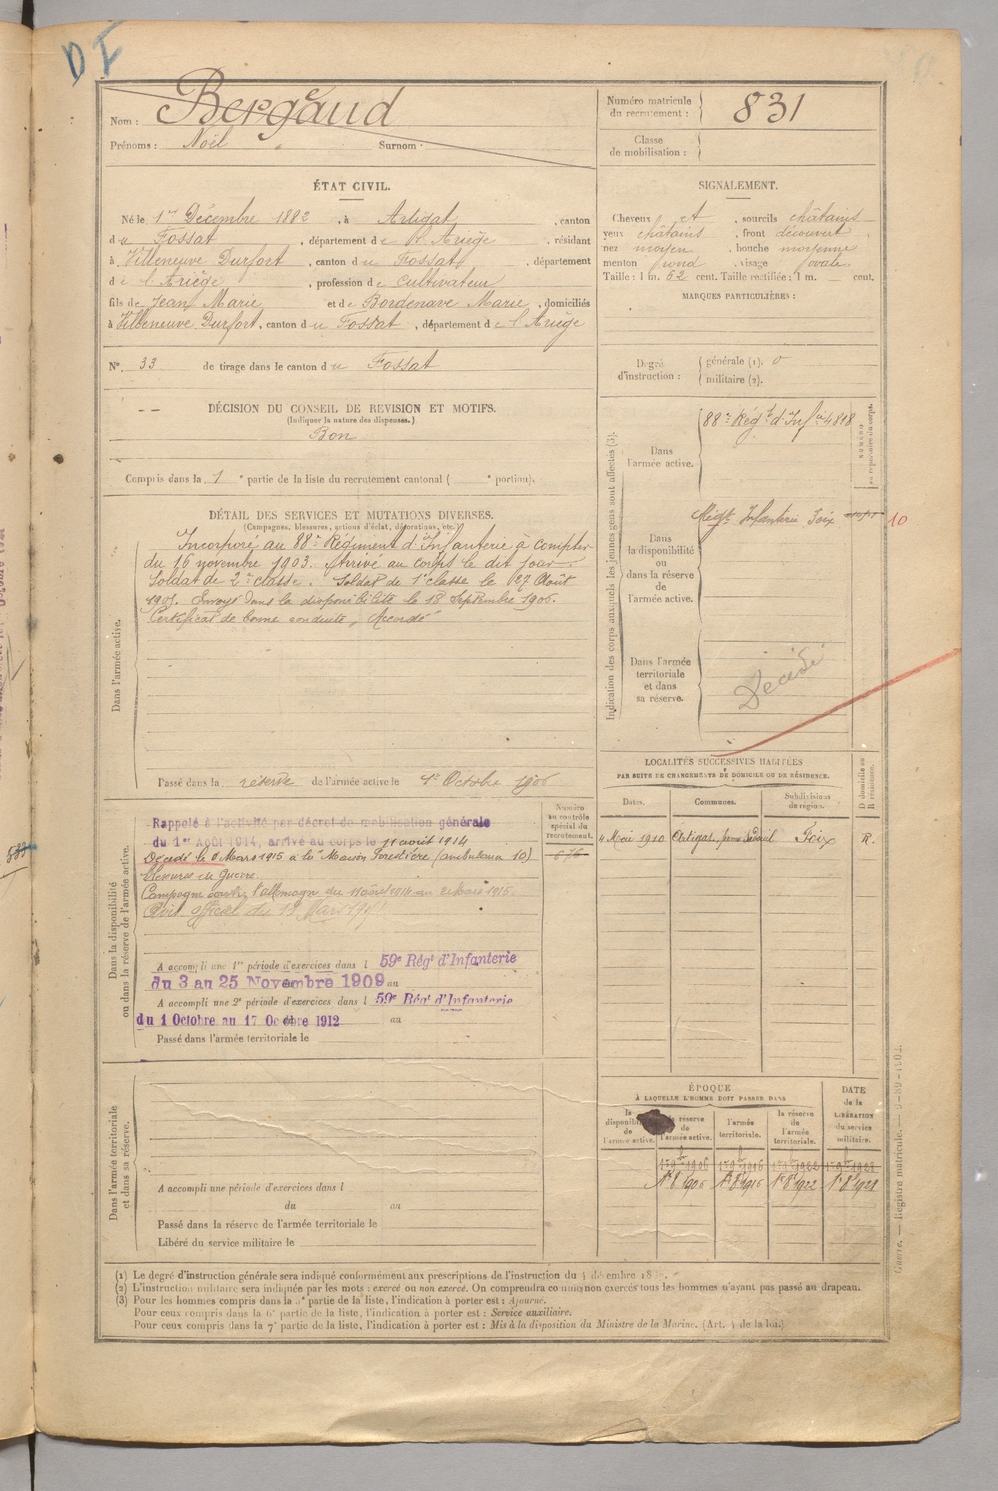 D I
Nom : Bergeaud
Prénoms : Noël Surnom :
Numéro matricule du recrutement : 831
Classe de mobilisation :
ÉTAT CIVIL.
Né le 1er Décembre 1882, à Artigat, canton
du Fossat, département de l'Ariège, résidant
à Villeneuve Durfort, canton du Fossat, département
de l'Ariège, profession de cultivateur
fils de Jean Marie et de Bordenave Marie, domiciliés
à Villeneuve Durfort, canton du Fossat, département de l'Ariège
N° 33 de tirage dans le canton du Fossat
SIGNALEMENT.
Cheveux et, sourcils châtains
yeux châtains, front découvert
nez moyen, bouche moyenne
menton rond, visage ovale
Taille : 1 m. 62 cent. Taille rectifiée : 1 m. cent.
MARQUES PARTICULIÈRES :
Degré d'instruction : générale (1). 0
militaire (2).
DÉCISION DU CONSEIL DE REVISION ET MOTIFS.
(Indiquer la nature des dispenses.)
Bon
Compris dans la 1e partie de la liste du recrutement cantonal ( e portion).
DÉTAIL DES SERVICES ET MUTATIONS DIVERSES.
(Campagnes, blessures, actions d'éclat, décorations, etc.)
Dans l'armée active.
Incorporé au 88e Régiment d'Infanterie à compter
du 16 novembre 1903. Arrivé au corps le dit jour.
Soldat de 2e classe. Soldat de 1e classe le 27 Août
1905. Envoyé dans la disponibilité le 18 Septembre 1906.
Certificat de bonne conduite, Accordé
Passé dans la réserve de l'armée active le 1er Octobre 1906
Indication des corps auxquels les jeunes gens sont affectés (3).
NUMÉRO au répertoire du corps.
Dans l'armée active.
88e Régt d'Infie 4818
Dans la disponibilité ou dans la réserve de l'armée active.
Régt Infanterie Foix 10
Dans l'armée territoriale et dans sa réserve.
Décédé
LOCALITÉS SUCCESSIVES HABITÉES
PAR SUITE DE CHANGEMENTS DE DOMICILE OU DE RÉSIDENCE.
Dates. Communes. Subdivisions de région. D domicile ou R résidence.
4 Mai 1910 Artigat, Foix R.
Dans la disponibilité ou dans la réserve de l'armée active.
Numéro au contrôle spécial du recrutement.
Rappelé à l'activité par décret de mobilisation générale
du 1er Août 1914, arrivé au corps le 11 août 1914
Décédé le Mars 1915 à la Maison Forestière (ambulance 10)
blessures de Guerre.
Campagne contre l'Allemagne du 11 août 1914 au 2 Mars 1915.
Avis officiel du 19 Mars
A accompli une 1re période d'exercices dans l 59e Régt d'Infanterie
du 3 au 25 Novembre 1909 au
A accompli une 2e période d'exercices dans l 59e Régt d'Infanterie
du 1 Octobre au 17 Octobre 1912 au
Passé dans l'armée territoriale le
ÉPOQUE
À LAQUELLE L'HOMME DOIT PASSER DANS
la disponibilité de l'armée active. la réserve de l'armée active. l'armée territoriale. la réserve de l'armée territoriale.
DATE de la LIBÉRATION du service militaire.
1er 8bre 1906 1er 8bre 1916 1er 8bre 1922 1er 8bre 1928
Dans l'armée territoriale et dans sa réserve.
A accompli une période d'exercices dans l
du au
Passé dans la réserve de l'armée territoriale le
Libéré du service militaire le
(1) Le degré d'instruction générale sera indiqué conformément aux prescriptions de l'instruction du 4 décembre
(2) L'instruction militaire sera indiquée par les mots : exercé ou non exercé. On comprendra comme non exercés tous les hommes n'ayant pas passé au drapeau.
(3) Pour les hommes compris dans la 5e partie de la liste, l'indication à porter est : Ajourné.
Pour ceux compris dans la 6e partie de la liste, l'indication à porter est : Service auxiliaire.
Pour ceux compris dans la 7e partie de la liste, l'indication à porter est : Mis à la disposition du Ministre de la Marine. (Art. 4 de la loi.)
Guerre. — Registre matricule.